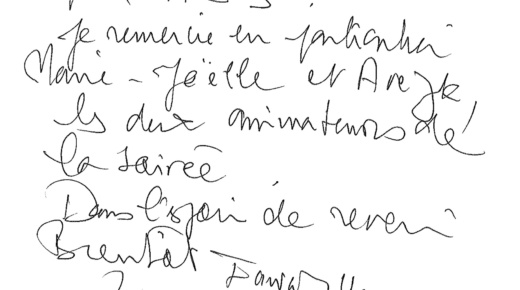 Je remercie en particulier
Marie-Joëlle et Arezk
les deux animateurs de
la soirée
Dans l'espoir de revenir
Bientôt